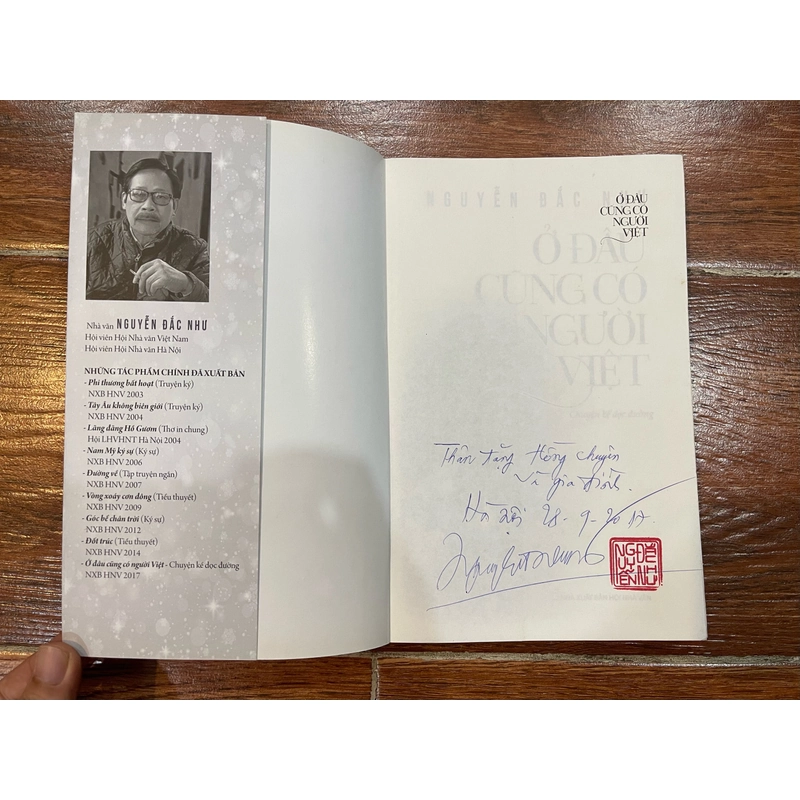 Nhà văn NGUYỄN ĐẮC NHƯ
Hội viên Hội Nhà văn Việt Nam
Hội viên Hội Nhà văn Hà Nội
NHỮNG TÁC PHẨM CHÍNH ĐÃ XUẤT BẢN
- Phi thương bất hoạt (Truyện ký)
NXB HNV 2003
- Tây Âu không biên giới (Truyện ký)
NXB HNV 2004
- Lãng đãng Hồ Gươm (Thơ in chung)
Hội LHVHNT Hà Nội 2004
- Nam Mỹ ký sự (Ký sự)
NXB HNV 2006
- Đường về (Tập truyện ngắn)
NXB HNV 2007
- Vòng xoáy cơn dông (Tiểu thuyết)
NXB HNV 2009
- Góc bể chân trời (Ký sự)
NXB HNV 2012
- Đốt trúc (Tiểu thuyết)
NXB HNV 2014
- Ở đâu cũng có người Việt - Chuyện kể dọc đường
NXB HNV 2017
Ở ĐÂU
CŨNG CÓ
NGƯỜI
VIỆT
NGUYỄN ĐẮC NHƯ
Ở ĐÂU
CŨNG CÓ
NGƯỜI
VIỆT
Thân tặng Hồng Chuyên
và gia đình.
Hà Nội 28-9-2017
NGUYỄN ĐẮC NHƯ